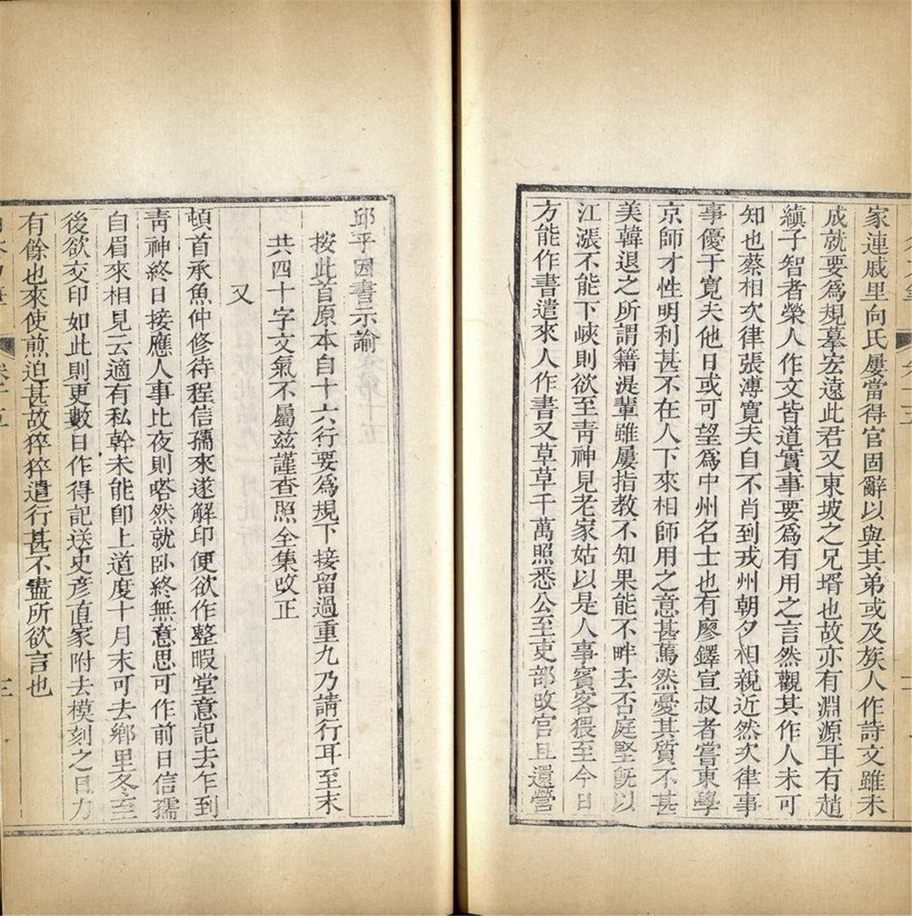 家連戚里向氏屢當得官固辭以與其弟或及族人作詩文雖未
成就要爲規摹宏遠此君又東坡之兄壻也故亦有淵源耳有趙
縝子智者榮人作文皆道實事要爲有用之言然觀其作人未可
知也蔡相次律張溥寬夫自不肖到戎州朝夕相親近然次律事
事優于寬夫他日或可望爲中州名士也有廖鐸宣叔者嘗東學
京師才性明利甚不在人下來相師用之意甚篤然憂其質不甚
美韓退之所謂籍湜輩雖屢指教不知果能不畔去否庭堅旣以
江漲不能下峽則欲至靑神見老家姑以是人事賓客猥至今日
方能作書遣來人作書又草草千萬照悉公至吏部改官且還營
邱平因書示諭
按此首原本自十六行要爲規下接留過重九乃請行耳至末
共四十字文氣不屬兹謹查照全集改正
又
頓首承魚仲修待程信孺來遂解印便欲作整暇堂意記去乍到
靑神終日接應人事比夜則嗒然就卧終無意思可作前日信孺
自眉來相見云適有私幹未能卽上道度十月末可去鄉里冬至
後欲交印如此則更數日作得記送史彦直家附去模刻之日力
有餘也來使煎迫甚故猝猝遣行甚不盡所欲言也